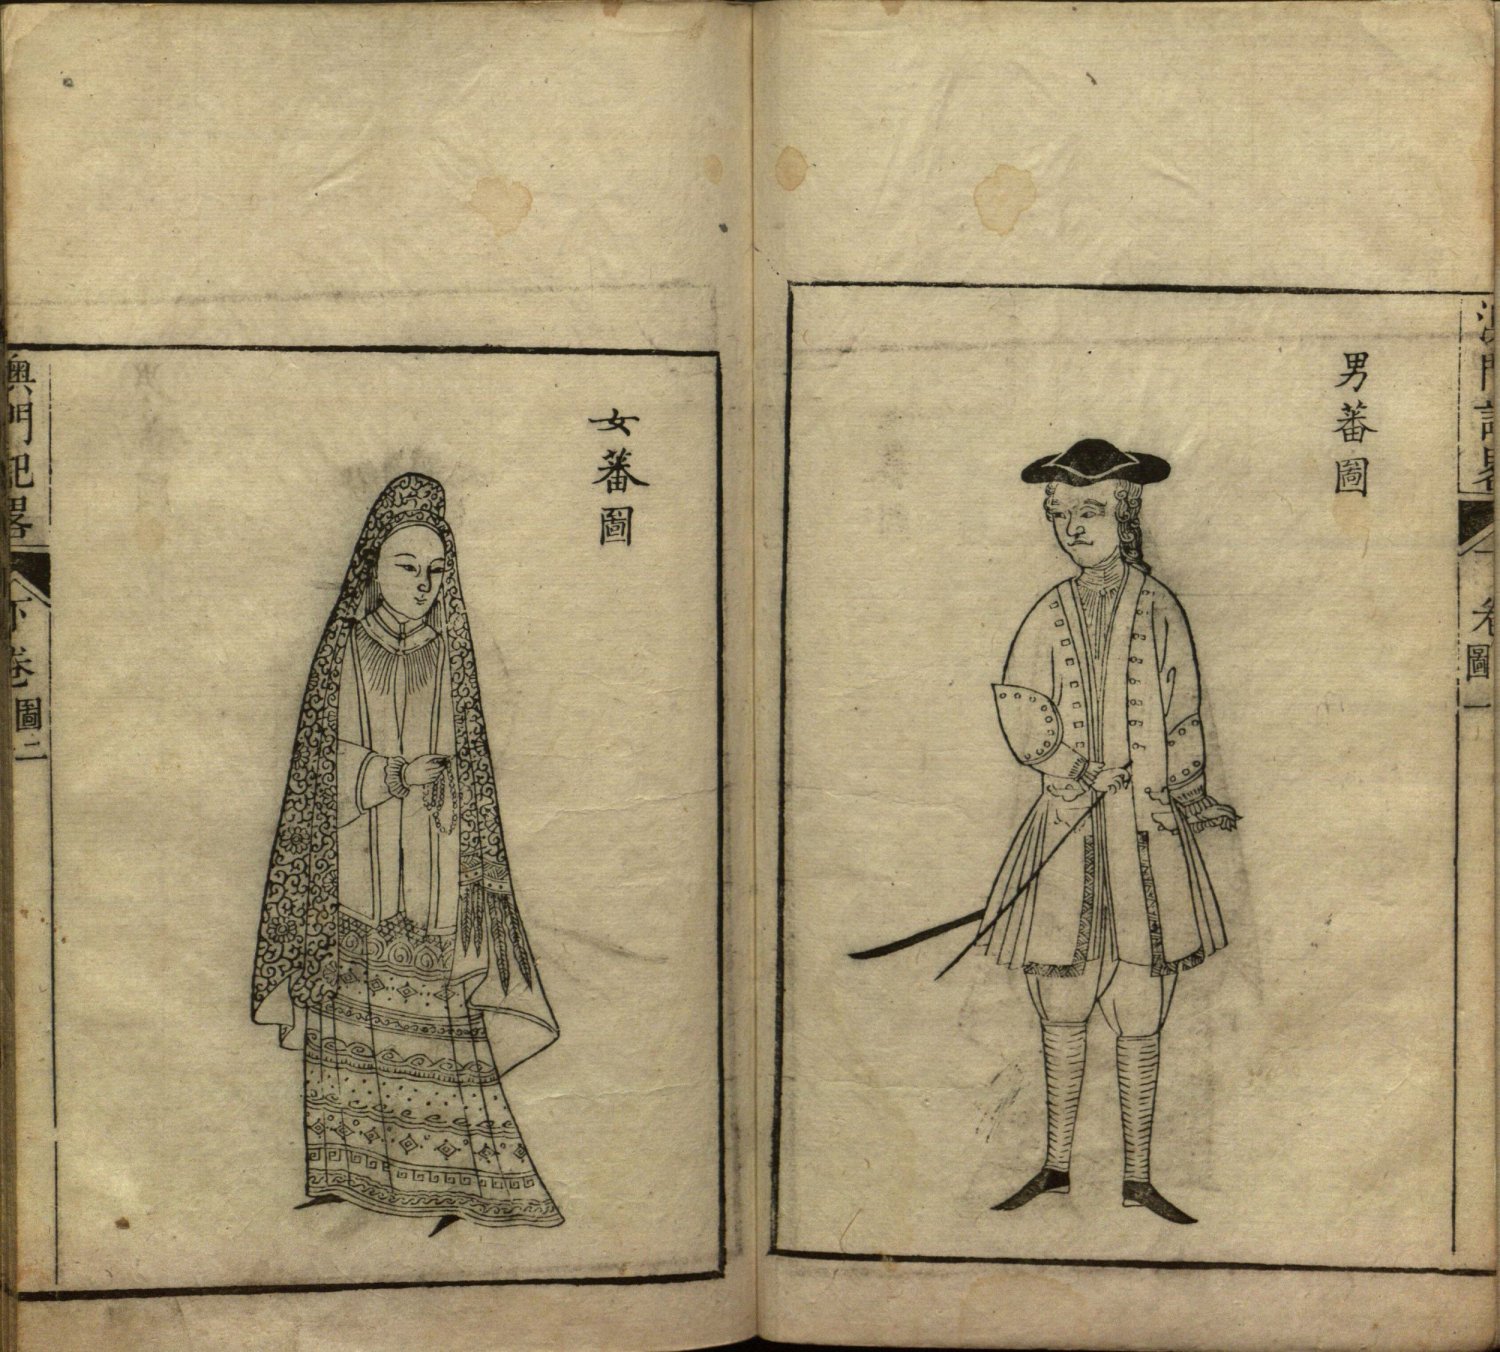 男蕃圖
澳門記畧
卷
圖一
女蕃圖
澳門記畧
下卷
圖二